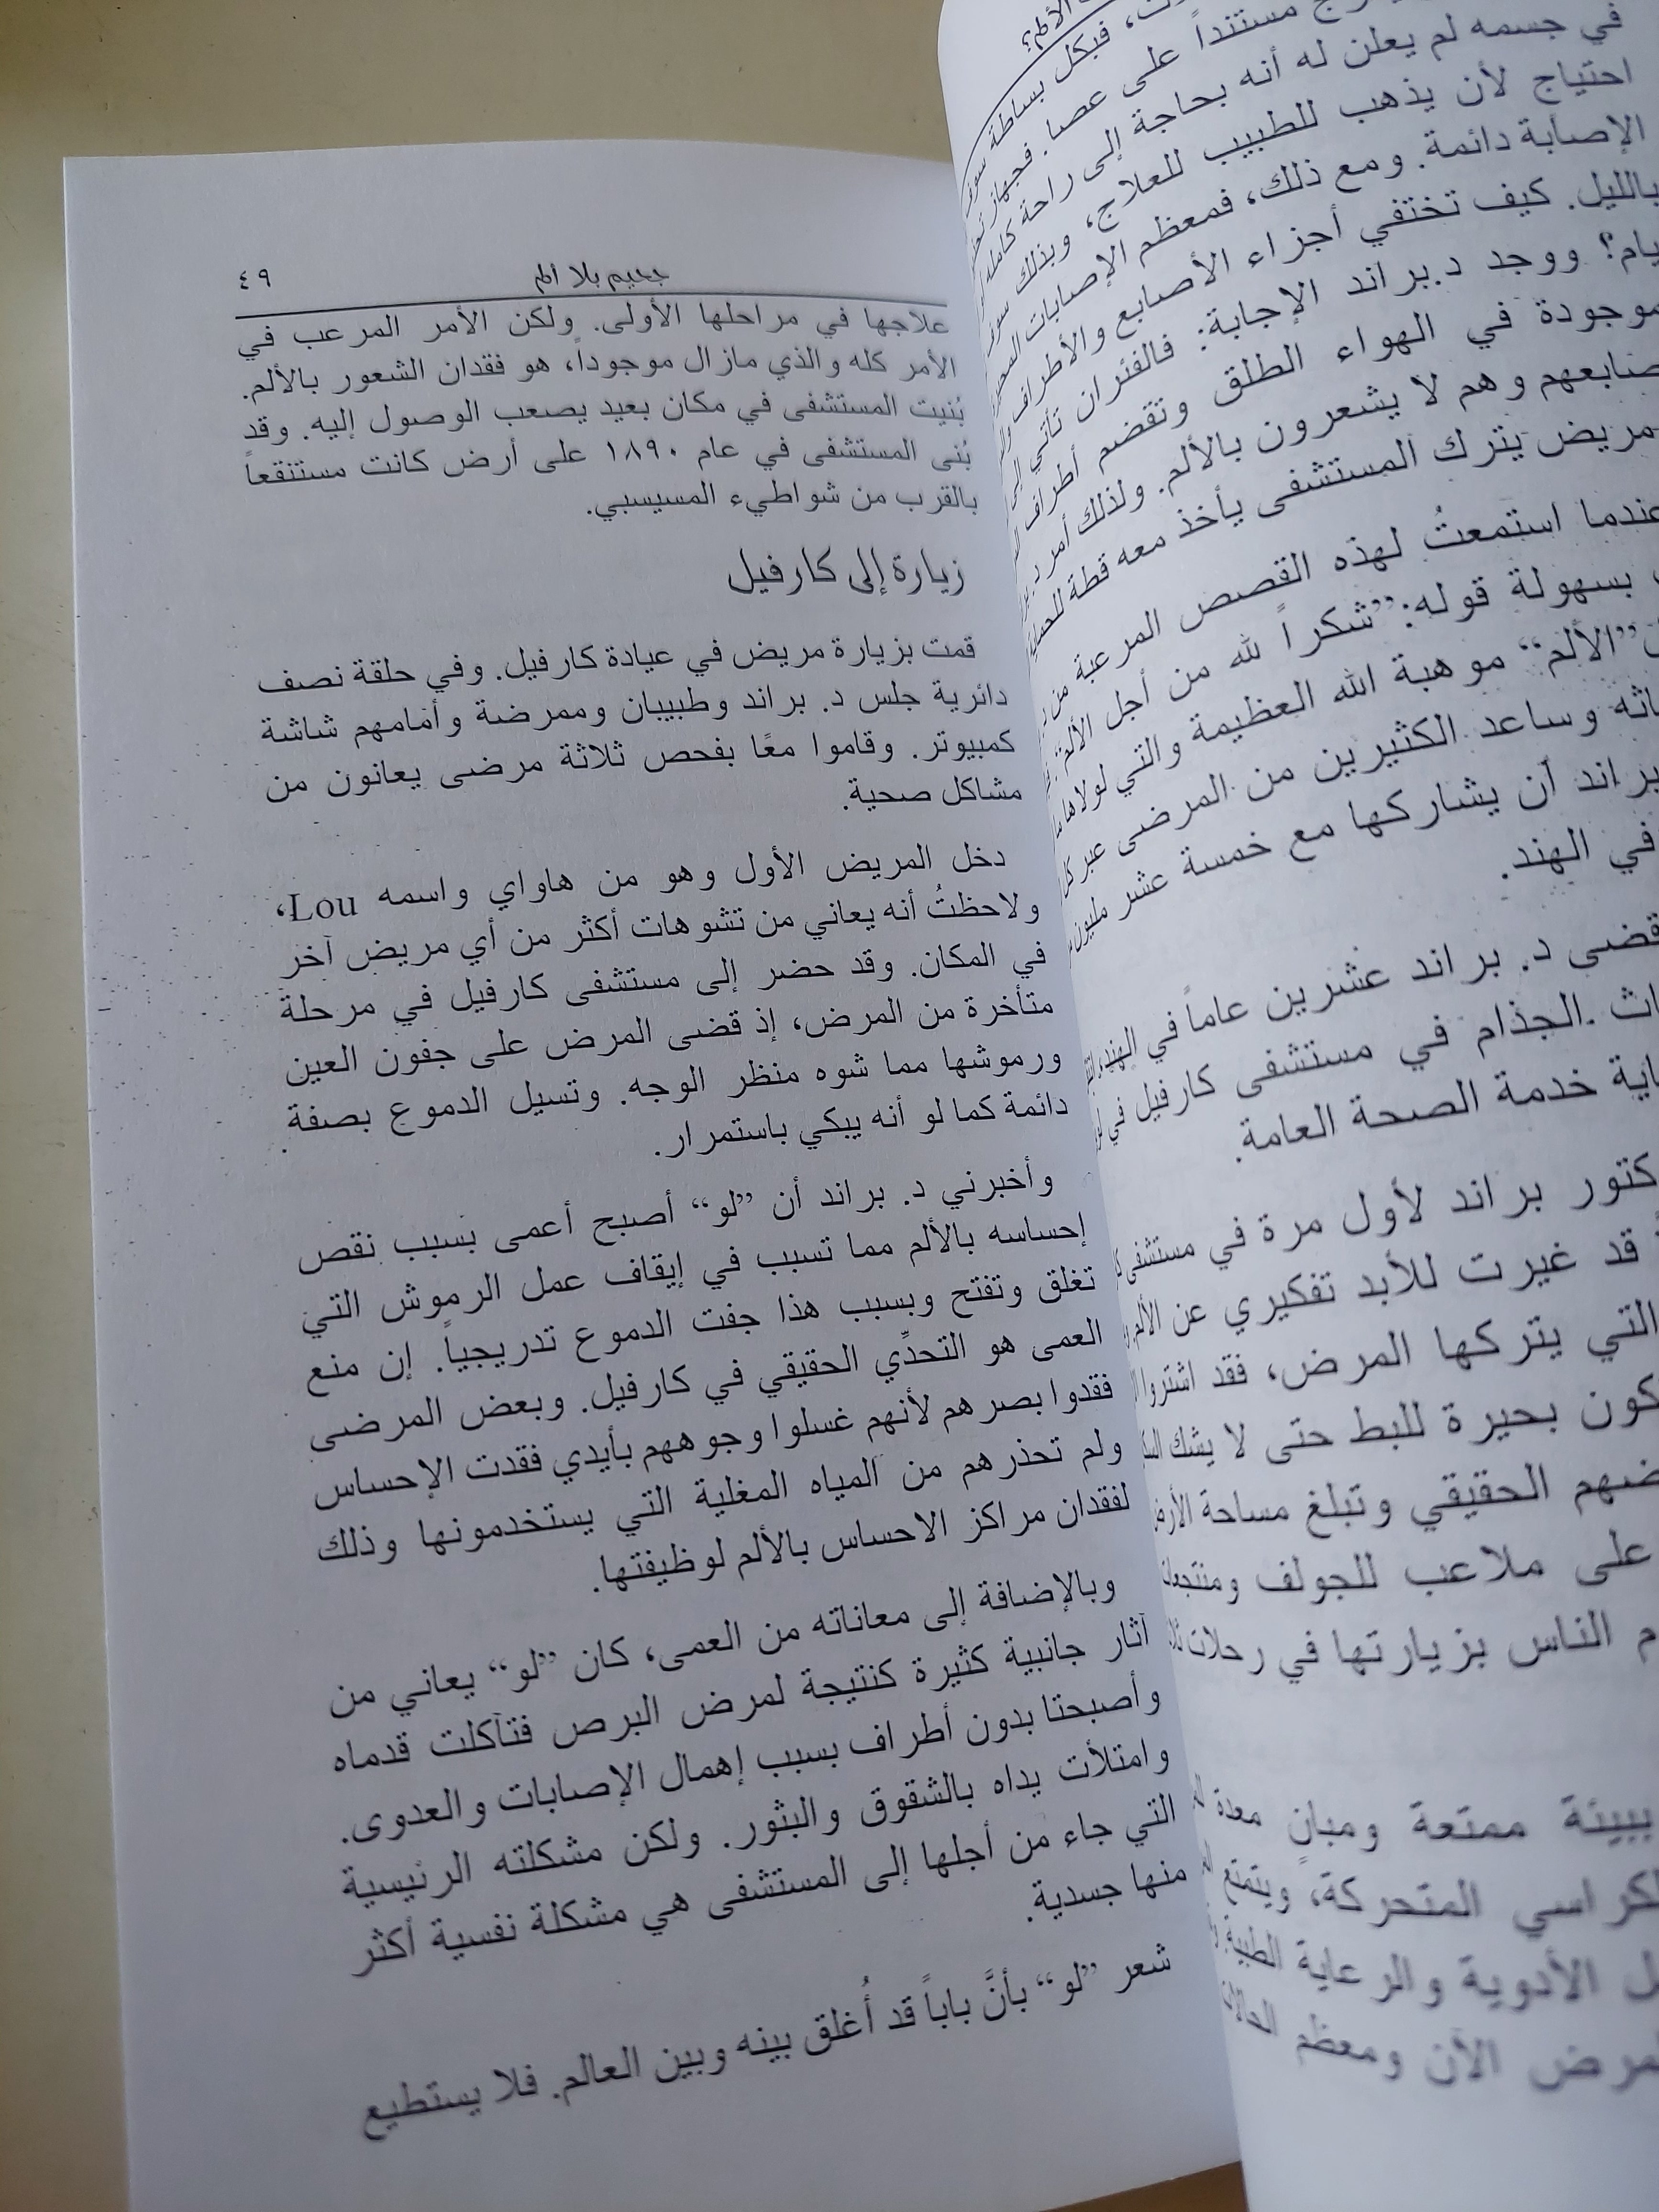 الألم؟
فبكل بساطة
مستنداً على عصا.
في جسمه لم يعلن له أنه بحاجة إلى راحة كاملة
احتياج لأن يذهب للطبيب للعلاج، وبذلك
الإصابة دائمة. ومع ذلك، فمعظم الإصابات
بالليل. كيف تختفي أجزاء الأصابع والأطراف
ووجد د.براند الإجابة: فالفئران تأتي إلى
موجودة في الهواء الطلق وتقضم أطراف
وهم لا يشعرون بالألم. ولذلك أمر د.
مريض يترك المستشفى يأخذ معه قطة
عندما استمعتُ لهذه القصص المرعبة من
بسهولة قوله: ”شكراً لله من أجل الألم“
”الألم“ موهبة الله العظيمة والتي لولاها
وساعد الكثيرين من المرضى عبر
براند أن يشاركها مع خمسة عشر مليون
في الهند.
قضى د. براند عشرين عاماً في الهند
الجذام في مستشفى كارفيل في
خدمة الصحة العامة.
براند لأول مرة في مستشفى
قد غيرت للأبد تفكيري عن الألم
التي يتركها المرض، فقد اشتروا
بحيرة للبط حتى لا يشك
الحقيقي وتبلغ مساحة الأرض
على ملاعب للجولف
الناس بزيارتها في رحلات
ببيئة ممتعة ومبانٍ معدة
المتحركة، ويتمتع
الأدوية والرعاية الطبية
الآن ومعظم الحالات
جحيم بلا ألم ٤٩
علاجها في مراحلها الأولى. ولكن الأمر المرعب في
الأمر كله والذي مازال موجوداً، هو فقدان الشعور بالألم.
بُنيت المستشفى في مكان بعيد يصعب الوصول إليه. وقد
بُنى المستشفى في عام ١٨٩٠ على أرض كانت مستنقعاً
بالقرب من شواطيء المسيسبي.
زيارة إلى كارفيل
قمت بزيارة مريض في عيادة كارفيل. وفي حلقة نصف
دائرية جلس د. براند وطبيبان وممرضة وأمامهم شاشة
كمبيوتر. وقاموا معًا بفحص ثلاثة مرضى يعانون من
مشاكل صحية.
دخل المريض الأول وهو من هاواي واسمه Lou،
ولاحظتُ أنه يعاني من تشوهات أكثر من أي مريض آخر
في المكان. وقد حضر إلى مستشفى كارفيل في مرحلة
متأخرة من المرض، إذ قضى المرض على جفون العين
ورموشها مما شوه منظر الوجه. وتسيل الدموع بصفة
دائمة كما لو أنه يبكي باستمرار.
وأخبرني د. براند أن ”لو“ أصبح أعمى بسبب نقص
إحساسه بالألم مما تسبب في إيقاف عمل الرموش التي
تغلق وتفتح وبسبب هذا جفت الدموع تدريجياً. إن منع
العمى هو التحدِّي الحقيقي في كارفيل. وبعض المرضى
فقدوا بصرهم لأنهم غسلوا وجوههم بأيدي فقدت الإحساس
ولم تحذرهم من المياه المغلية التي يستخدمونها وذلك
لفقدان مراكز الاحساس بالألم لوظيفتها.
وبالإضافة إلى معاناته من العمى، كان ”لو“ يعاني من
آثار جانبية كثيرة كنتيجة لمرض البرص فتآكلت قدماه
وأصبحتا بدون أطراف بسبب إهمال الإصابات والعدوى.
وامتلأت يداه بالشقوق والبثور. ولكن مشكلته الرئيسية
التي جاء من أجلها إلى المستشفى هي مشكلة نفسية أكثر
منها جسدية.
شعر ”لو“ بأنَّ باباً قد أُغلق بينه وبين العالم. فلا يستطيع